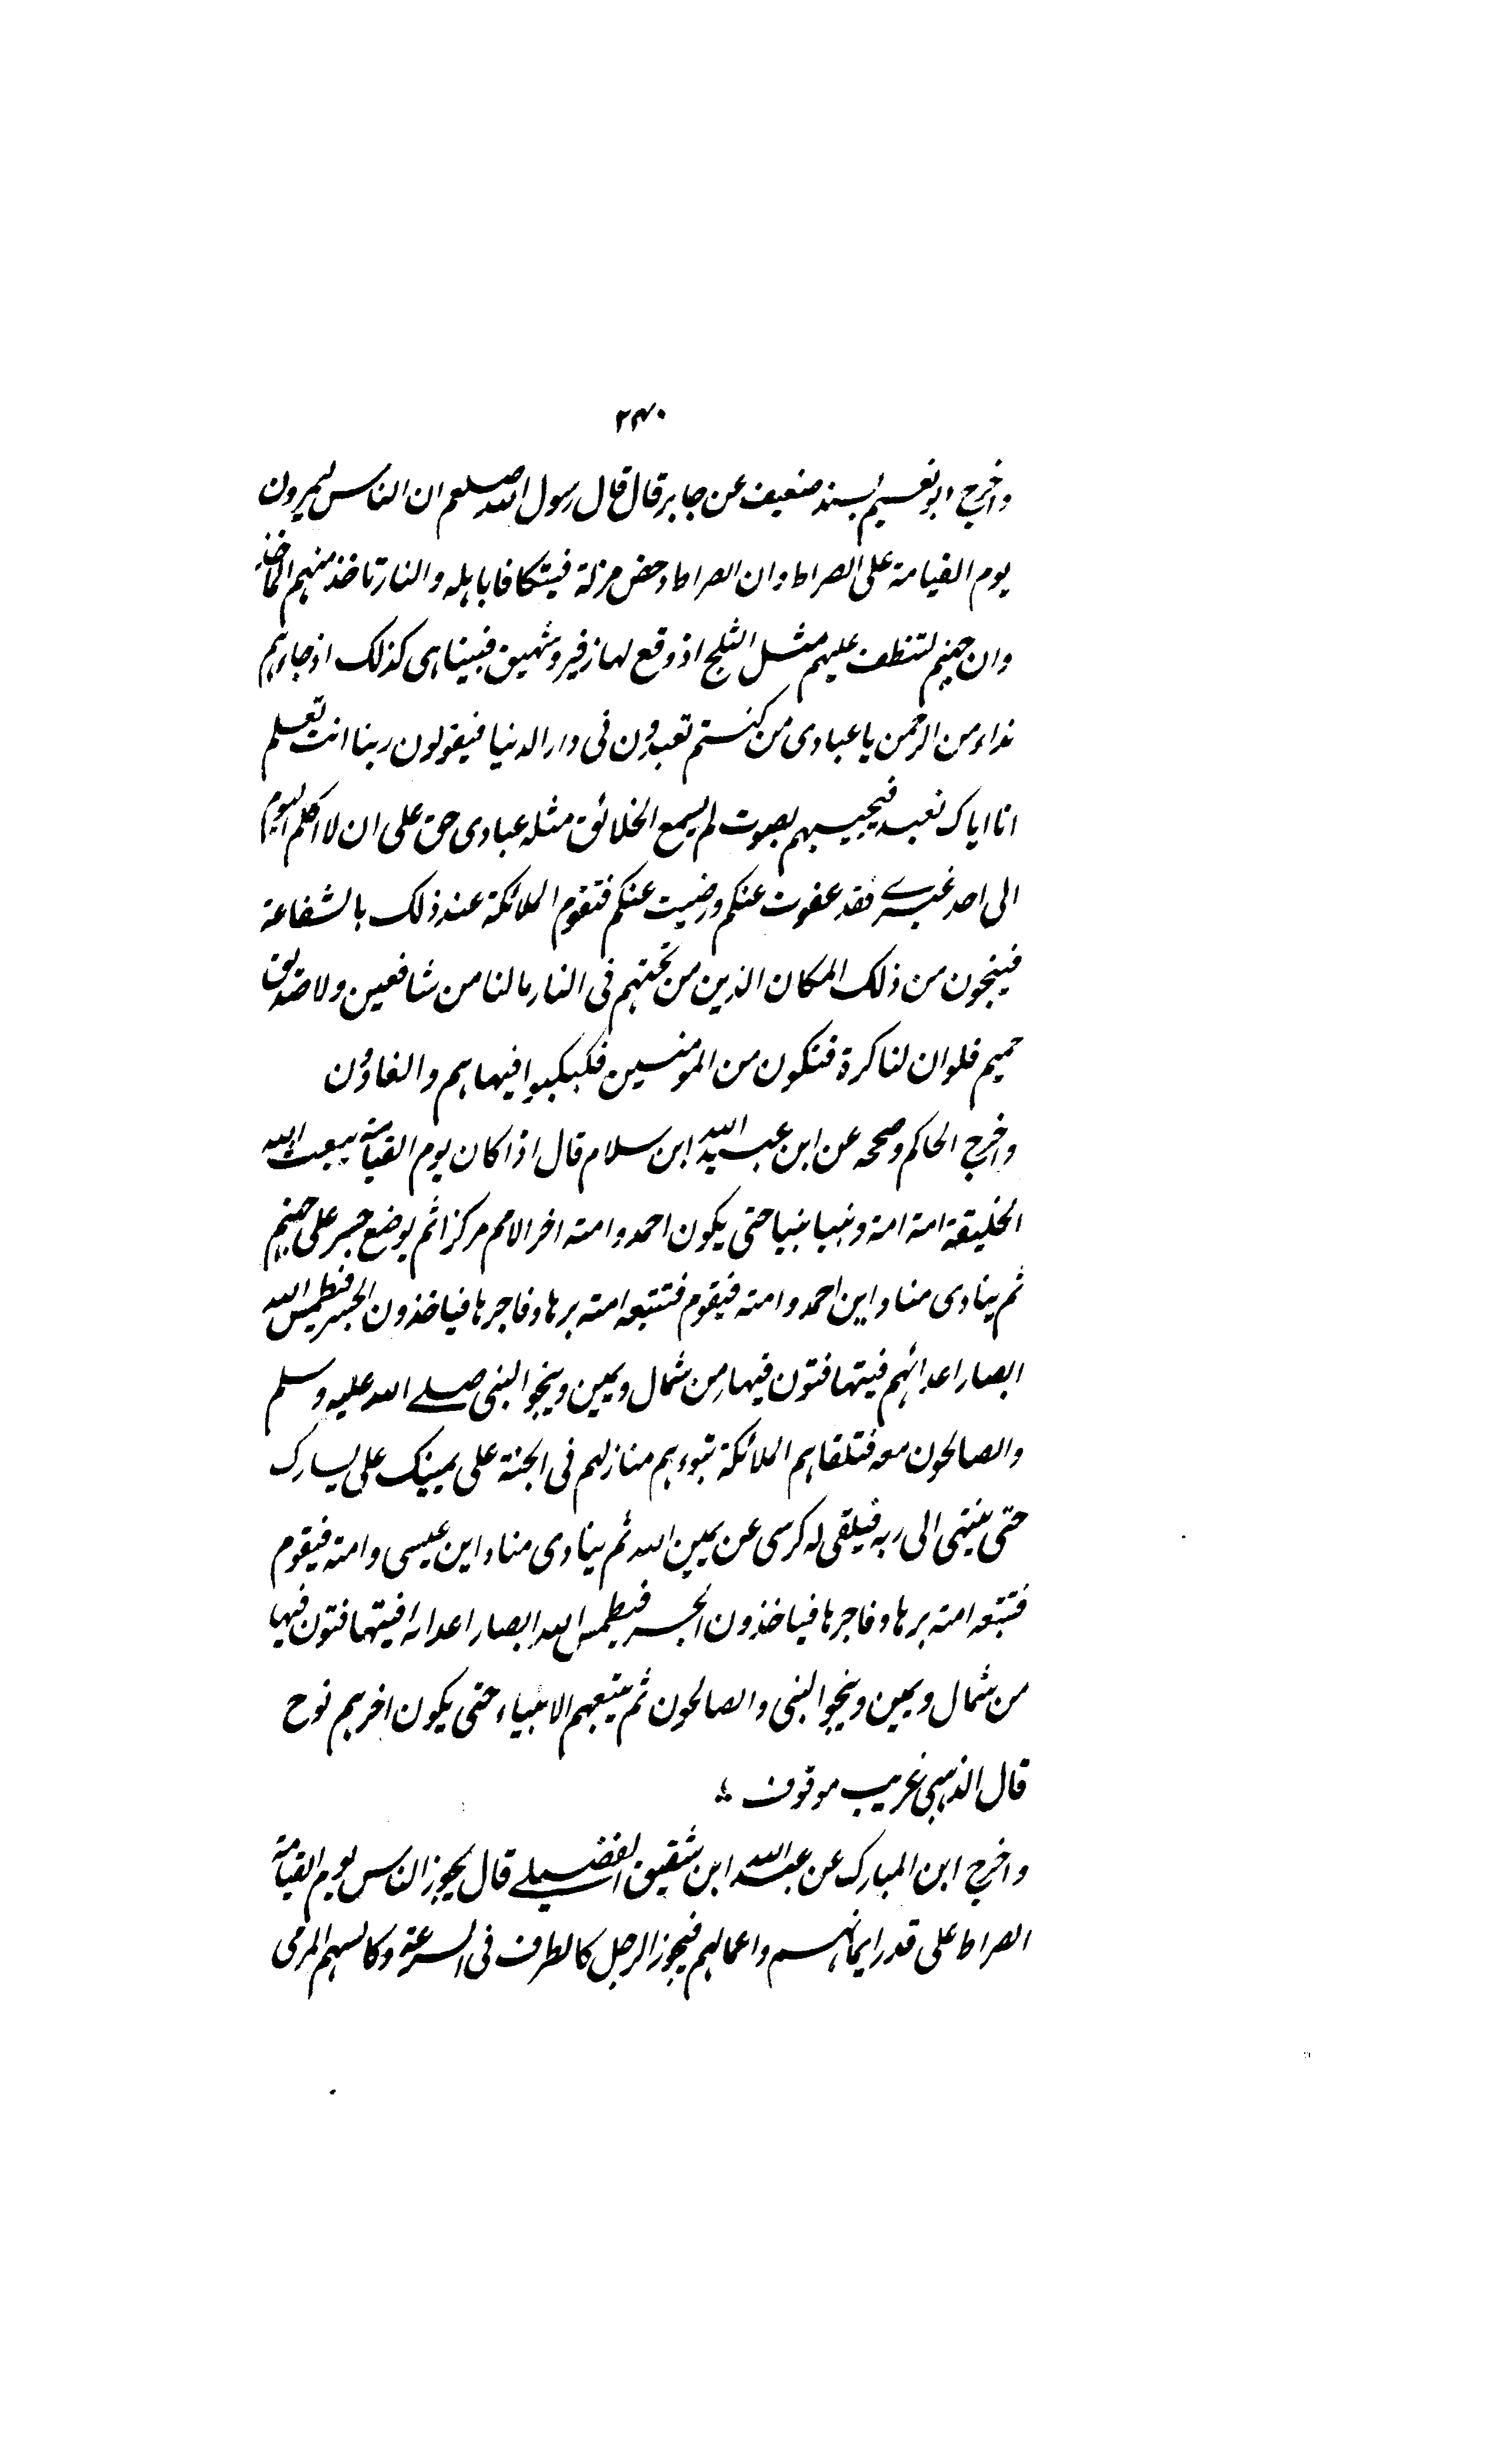 ۲۴۰
واخرج ابونعیم بسند ضعیف عن جابر قال قال رسول اللہ صلعم ان الناس لیمرون
یوم القیامة علی الصراط وان الصراط دحض مزلة فیتکافا باہلہ والنار تاخذ منہم الماخذ
وان جہنم لتنطف علیہم مثل الثلج اذ وقع لہا زفیر وشہیق فبینا ہی کذلک اذ جاءہم
نداء من الرحمن یا عبادی من کنتم تعبدون فی دار الدنیا فیقولون ربنا انت تعلم
انا ایاک نعبد فیجیبہم بصوت لم یسمع الخلائق مثلہ عبادی حق علی ان لا اکلکم الیوم
الی احد غیری فقد عفوت عنکم ورضیت عنکم فتقوم الملائکة عند ذلک بالشفاعة
فینجون من ذلک المکان الذین من تحتہم فی النار مالنا من شافعین ولا صدیق
حمیم فلو ان لنا کرة فنکون من المومنین فکبکبوا فیہا ہم والغاوٗن
واخرج الحاکم وصححہ عن ابن عبد اللہ ابن سلام قال اذا کان یوم القیامة یبعث اللہ
الخلیقة امة امة ونبیا نبیا حتی یکون احمد وامتہ اخر الامم مرکزا ثم یوضع جسر علی جہنم
ثم ینادی مناد این احمد وامتہ فیقوم فتتبعہ امتہ برہا وفاجرہا فیاخذون الجسر فیطمس اللہ
ابصار اعدائہم فیتہافتون فیہا من شمال ویمین وینجو النبی صلے اللہ علیہ وسلم
والصالحون معہ فتلقاہم الملائکة تبوءہم منازلہم فی الجنة علی یمینک علی یسارک
حتی ینتہی الی ربہ فیلقی لہ کرسی عن یمین اللہ ثم ینادی مناد این عیسی وامتہ فیقوم
فتتبعہ امتہ برہا وفاجرہا فیاخذون الجسر فیطمس اللہ ابصار اعدائہ فیتہافتون فیہا
من شمال ویمین وینجو النبی والصالحون ثم یتبعہم الانبیاء حتی یکون اخرہم نوح
قال الذہبی غریب موقوف
واخرج ابن المبارک عن عبد اللہ ابن شقیق قال یجوز الناس یوم القیامة
الصراط علی قدر ایمانہم واعمالہم فیجوز الرجل کالطرف فی السرعة وکالسہم المرمی